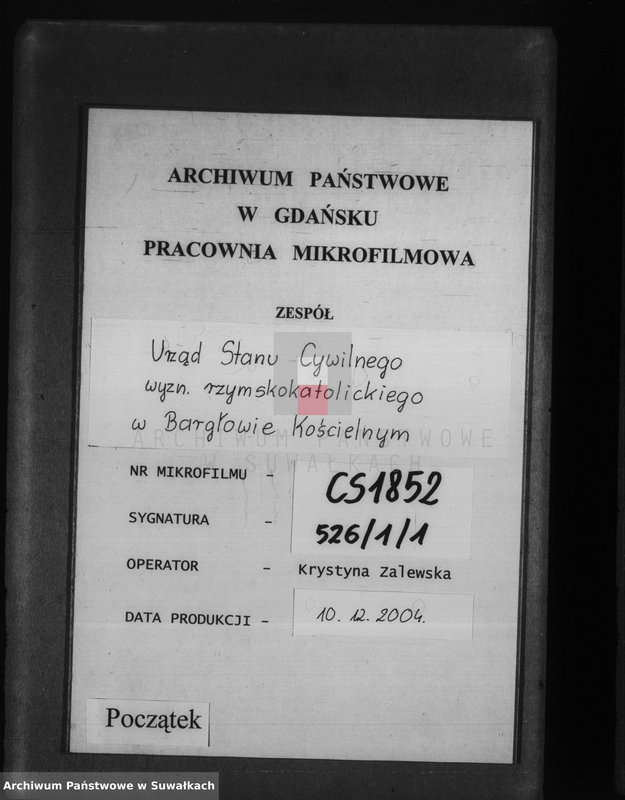 ARCHIWUM PAŃSTWOWE
W GDAŃSKU
PRACOWNIA MIKROFILMOWA
ZESPÓŁ
Urząd Stanu Cywilnego
wyzn. rzymskokatolickiego
w Bargłowie Kościelnym
ARCHIWUM PAŃSTWOWE
W SUWAŁKACH
NR MIKROFILMU - CS1852
SYGNATURA - 526/1/1
OPERATOR - Krystyna Zalewska
DATA PRODUKCJI - 10. 12. 2004.
Początek
Archiwum Państwowe w Suwałkach